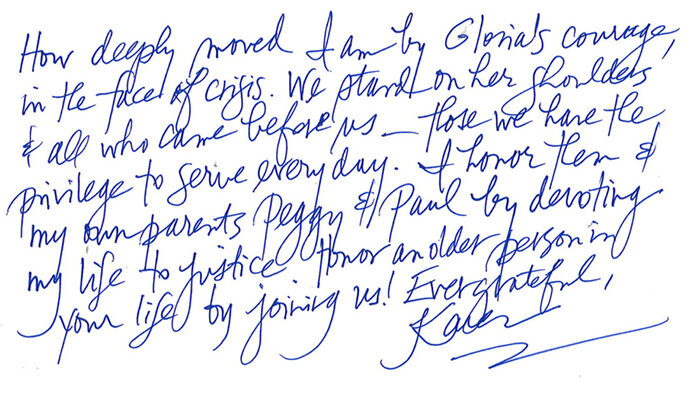 How deeply moved I am by Gloria's courage,
in the face of crisis. We stand on her shoulders
& all who came before us – those we have the
privilege to serve every day. I honor them &
my own parents Peggy & Paul by devoting
my life to justice. Honor an older person in
your life by joining us! Ever grateful,
Karen